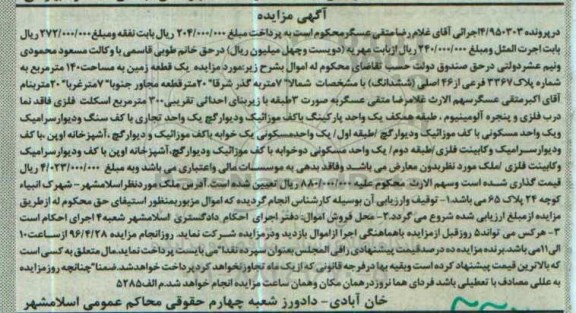 آگهی مزایده
در پرونده ۴/۹۵۰۳۰۳اجرائی آقای غلام رضا متقی عسگر محکوم است به پرداخت مبلغ ۲۰۴/۰۰۰/۰۰۰ ریال بابت نفقه ومبلغ ۲۷۲/۰۰۰/۰۰۰ ریال
بابت اجرت المثل ومبلغ ۲۴۰/۰۰۰/۰۰۰ ریال ازبابت مهریه (دویست وچهل میلیون ریال) درحق خانم طوبی قاسمی با وکالت مسعود محمودی
ونیم عشردولتی درحق صندوق دولت حسب تقاضای محکوم له اموال بشرح زیر:مورد مزایده یک قطعه زمین به مساحت ۱۴۰ مترمربع به
شماره پلاک ۳۳۶۷ فرعی از ۴۶ اصلی (ششدانگ) با مشخصات شمالا" ۷متربه گذر شرقا" ۲۰مترقطعه مجاور جنوبا" ۷مترغربا" ۲۰متربنام
آقای اکبرمتقی عسگرسهم الارث غلامرضا متقی عسگربه صورت ۳طبقه با زیربنای احداثی تقریبی۳۰۰ مترمربع اسکلت فلزی فاقد نما
درب فلزی و پنجره آلومینیوم ، طبقه همکف یک واحد پارکینگ باکف موزائیک ودیوارگچ یک واحد تجاری با کف سنگ ودیوارسرامیک
ویک واحد مسکونی با کف موزائیک ودیوارگچ /طبقه اول / یک واحدمسکونی یک خوابه باکف موزائیک و دیوارگچ ،آشپزخانه اوپن ،با کف
ودیوارسرامیک وکابینت فلزی/طبقه دوم / یک واحد مسکونی دوخوابه با کف موزائیک ودیوارگچ،آشپزخانه اوپن با کف ودیوارسرامیک
وکابینت فلزی /ملک مورد نظربدون معارض می باشد وفاقد بدهی به موسسات مالی واعتباری می باشد وبه مبلغ ۴/۰۲۳/۰۰۰/۰۰۰ ریال
قیمت گذاری شده است وسهم الارث محکوم علیه ۸۸۰/۰۰۰/۰۰۰ ریال تعیین شده است.آدرس ملک موردنظراسلامشهر- شهرک انبیاء
کوچه ۲۴ پلاک ۶۵ می باشد.۱- توقیف وارزیابی آن بوسیله کارشناس انجام گردیده که اموال مزبوربمنظور استیفای حق محکوم له ازطریق
مزایده از مبلغ ارزیابی شده شروع می گردد.۲- محل فروش اموال: دفتر اجرای احکام دادگستری اسلامشهر شعبه ۴ اجرای احکام است
۳- هرکس می تواند۵ روزقبل ازمزایده باهماهنگی اجرا ازاموال بازدید ودرمزایده شرکت نماید. روزانجام مزایده ۹۶/۴/۲۸ ازساعت ۱۰
الی۱۱می باشد.برنده مزایده ده درصدقیمت پیشنهادی رافی المجلس بعنوان سپرده نقدا" می بایست پرداخت نماید.مال متعلق به کسی است
که بالاترین قیمت پیشنهاد کرده است وبقیه بها درفرجه قانونی که ازیک ماه تجاوزنخواهد کردپرداخت خواهدشد.ضمنا"چنانچه روزمزایده
به عللی مصادف با تعطیلی باشد فردای همان روزدرهمان مکان وهمان ساعت مزایده انجام خواهد شد.م الف۵۲۸۵
خان آبادی- دادورز شعبه چهارم حقوقی محاکم عمومی اسلامشهر